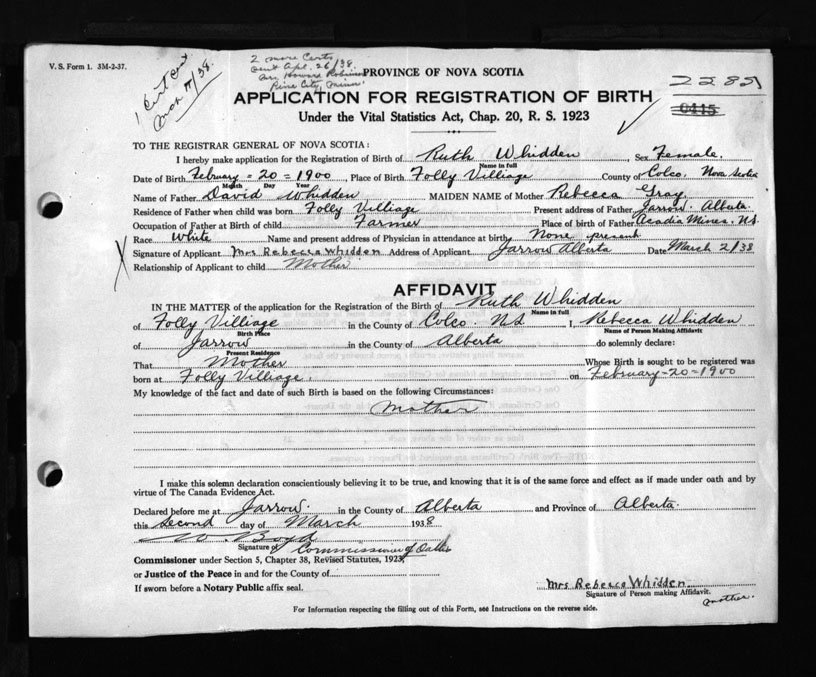 V. S. Form 1. 3M-2-37.
1 Cert
38.
2 more Certs
sent Apl. 26/38.
Mrs Howard
Pine City, Minn.
PROVINCE OF NOVA SCOTIA
2285
0415
APPLICATION FOR REGISTRATION OF BIRTH
Under the Vital Statistics Act, Chap. 20, R. S. 1923
TO THE REGISTRAR GENERAL OF NOVA SCOTIA:
I hereby make application for the Registration of Birth of Ruth Whidden Sex Female.
Name in full
Date of Birth February - 20 = 1900, Place of Birth Folly Villiage County of Colco, Nova Scotia
Month Day Year
Name of Father David Whidden MAIDEN NAME of Mother Rebecca Gray
Residence of Father when child was born Folly Villiage Present address of Father Jarrow. Alberta.
Occupation of Father at Birth of child Farmer Place of birth of Father Acadia Mines. N.S.
Race White Name and present address of Physician in attendance at birth None present
Signature of Applicant Mrs Rebecca Whidden Address of Applicant Jarrow Alberta Date March 2/38
Relationship of Applicant to child Mother
AFFIDAVIT
IN THE MATTER of the application for the Registration of the Birth of Ruth Whidden
Name in full
of Folly Villiage in the County of Colco. N.S. I Rebecca Whidden
Birth Place Name of Person Making Affidavit
of Jarrow in the County of Alberta do solemnly declare:
Present Residence
That Mother Whose Birth is sought to be registered was
born at Folly Villiage. on February-20=1900
My knowledge of the fact and date of such Birth is based on the following Circumstances:
Mother
I make this solemn declaration conscientiously believing it to be true, and knowing that it is of the same force and effect as if made under oath and by
virtue of The Canada Evidence Act.
Declared before me at Jarrow. in the County of Alberta and Province of Alberta.
this second day of March 1938
W. Boyd
Signature of Commissioner of Oaths
Commissioner under Section 5, Chapter 38, Revised Statutes, 1923,
or Justice of the Peace in and for the County of
If sworn before a Notary Public affix seal.
Mrs Rebecca Whidden
Signature of Person making Affidavit.
Mother.
For Information respecting the filling out of this Form, see Instructions on the reverse side.